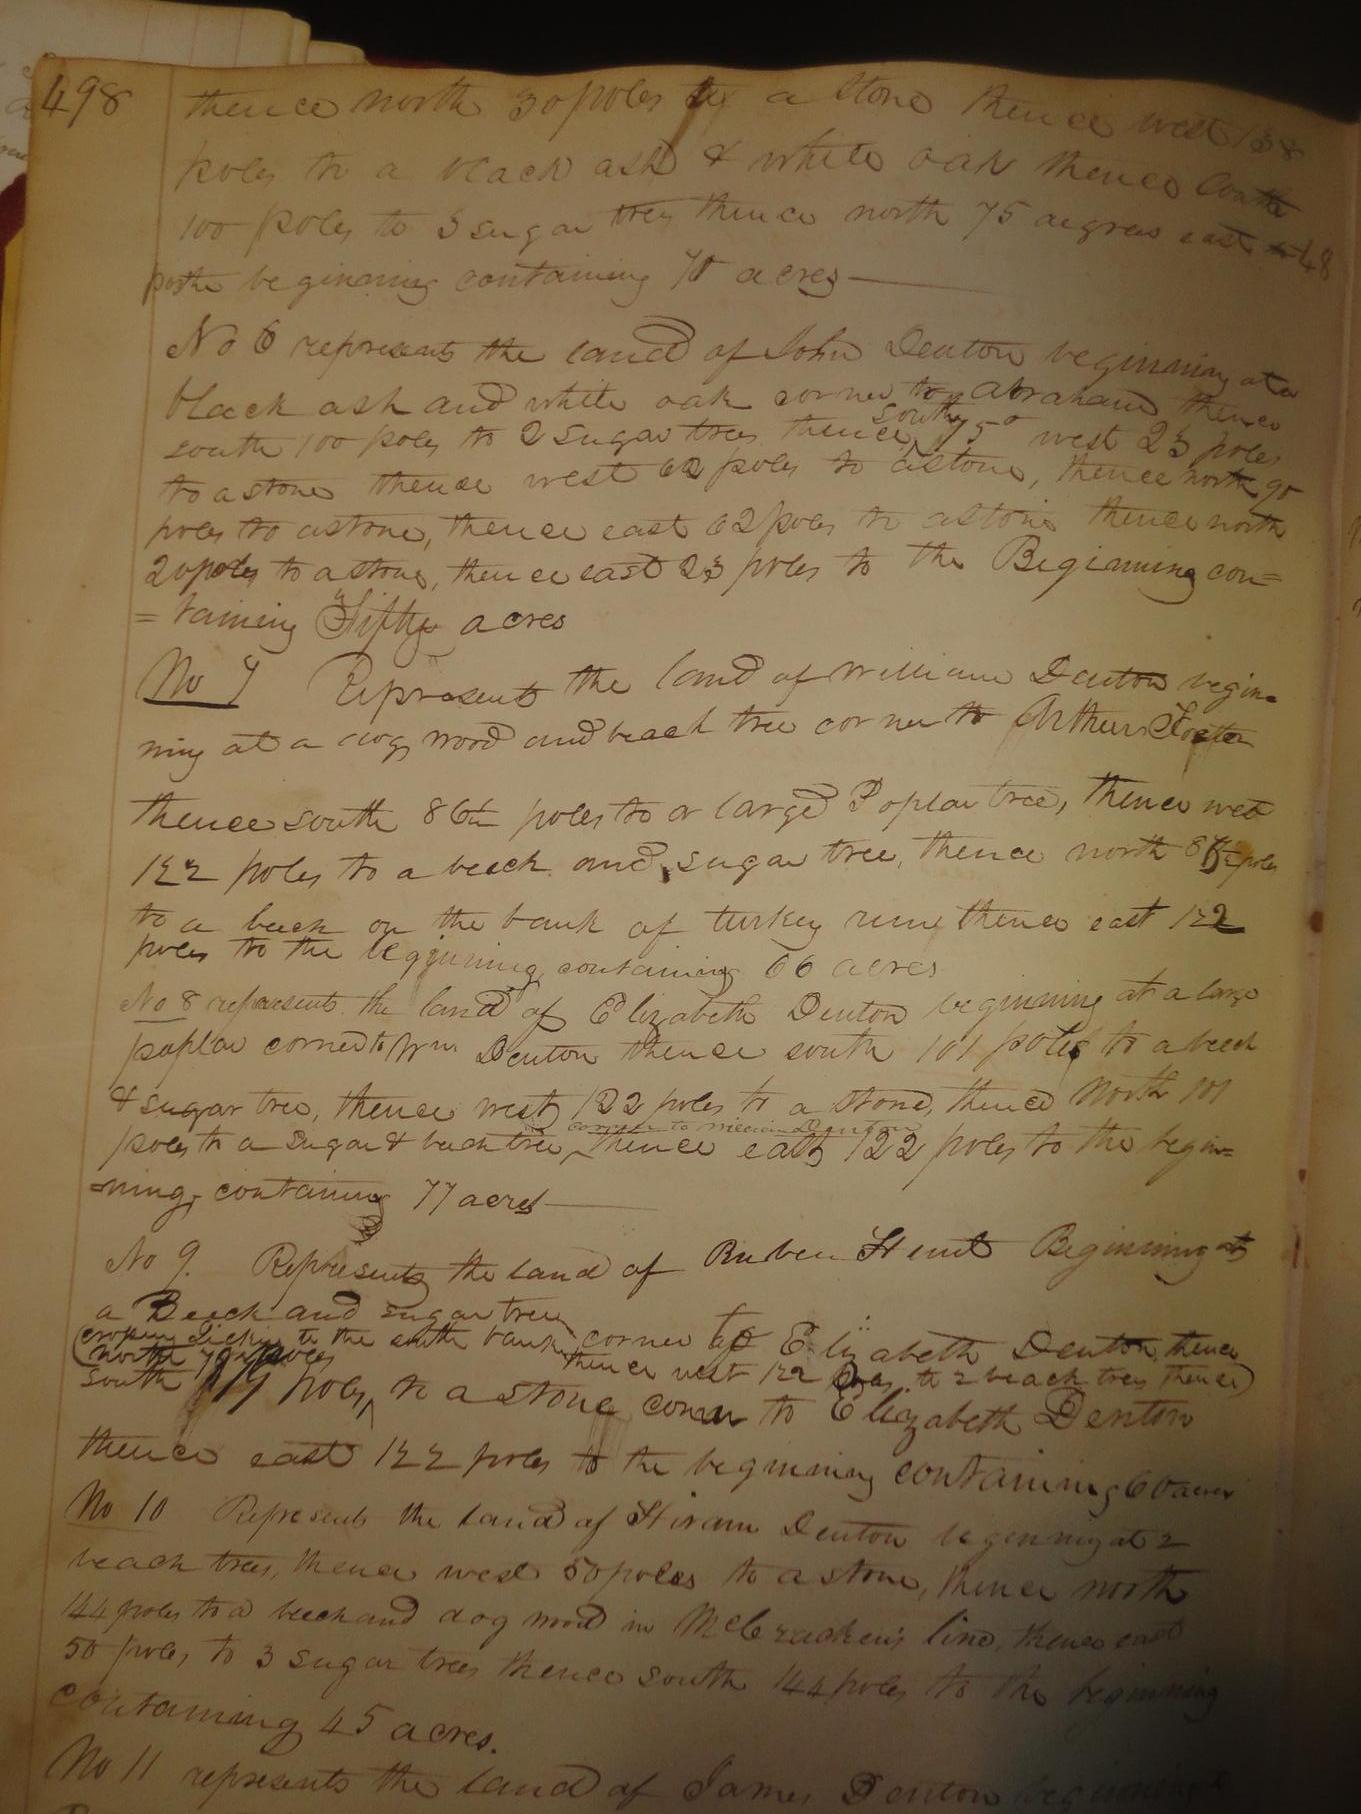 498
thence north 30 poles to a stone thence west 138
poles to a black ash & white oak thence South
100 poles to 3 sugar trees thence north 75 degrees east 48
pos the beginning containing 70 acres
No 6 represents the land of John Denton beginning at a
black ash and white oak corner to Abraham thence
south 100 poles to 2 sugar trees thence south 75° west 23 poles
to a stone thence west 62 poles to a stone, thence north 90
poles to a stone, thence east 62 poles to a stone thence north
20 poles to a stone, thence east 23 poles to the Beginning con=
=taining Fifty acres
No 7 Represents the land of William Denton begin=
ning at a dog wood and beach tree corner to Arthur Foster
thence south 86½ poles to a large Poplar tree, thence west
122 poles to a beech and sugar tree, thence north 86½ poles
to a beech on the bank of turkey run thence east 122
poles to the beginning containing 66 acres
No 8 represents the land of Elizabeth Denton beginning at a large
poplar corner to Wm Denton thence south 101 poles to a beech
& sugar tree, thence west 122 poles to a stone, thence North 101
corner to William Denton
poles to a sugar & beach tree, thence east 122 poles to the begin=
=ning, containing 77 acres
No 9. Represents the land of Ruben Hunt Beginning at
a Beech and sugar tree corner to Elizabeth Denton, thence
to the south bank
north poles thence west 122 to 2 beach trees thence)
south poles, to a stone corner to Elizabeth Denton
thence east 122 poles to the beginning containing 60 acres
No 10 Represents the land of Hiram Denton beginning at 2
beach trees, thence west 50 poles to a stone, thence north
144 poles to a beech and dog wood in McCrackens line, thence east
50 poles, to 3 sugar trees thence south 144 poles to the beginning
containing 45 acres.
No 11 represents the land of James Denton beginning